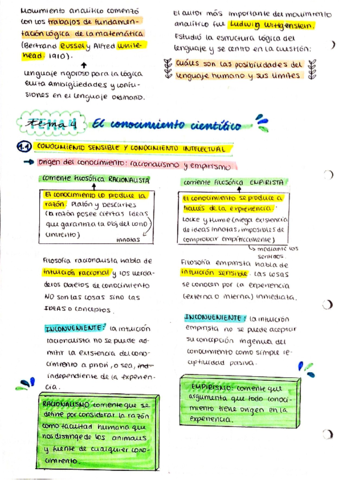 Movimiento analítico comenzó
con los trabajos de fundamen-
tación lógica de la matemática
(Bertrand Russel y Alfred White-
head 1910).
lenguaje riguroso para la lógica
evita ambigüedades y confu-
siones en el lenguaje ordinario.
el autor más importante del movimiento
analítico fue Ludwig Wittgenstein.
Estudió la estructura lógica del
lenguaje y se centró en la cuestión:
cuáles son las posibilidades del
lenguaje humano y sus límites.
Tema 4 El conocimiento científico
CONOCIMIENTO SENSIBLE Y CONOCIMIENTO INTELECTUAL
→ origen del conocimiento: racionalismo y empirismo
corriente filosófica RACIONALISTA
El conocimiento lo produce la
razón. Platón y Descartes
(la razón posee ciertas ideas
que garantizan la del cono
cimiento)
innatas
Filosofía racionalista habla de
intuición racional y los verda-
deros objetos de conocimiento
NO son las cosas sino las
ideas o conceptos.
INCONVENIENTE: la intuición
racionalista no se puede ad-
mitir la existencia del cono-
cimiento a priori, o sea,
independiente de la experien-
cia.
RACIONALISMO: corriente que se
define por considerar la razón
como facultad humana que
nos distingue de los animales
y fuente de cualquier cono-
cimiento.
corriente filosófica EMPIRISTA
El conocimiento se produce a
través de la experiencia.
Locke y Hume (niega existencia
de ideas innatas, imposibles de
comprobar empíricamente)
mediante los
sentidos
Filosofía empirista habla de
intuición sensible. Las cosas
se conocen por la experiencia
(externa o interna) inmediata.
INCONVENIENTE: la intuición
empirista no se puede aceptar
su concepción ingenua del
conocimiento como simple re-
ceptividad pasiva.
EMPIRISMO: corriente que
argumenta que todo conoci-
miento tiene origen en la
experiencia.